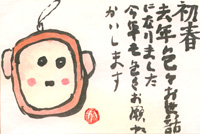 初春
去年は色々お世話
になりました
今年も色々お願い
かいします